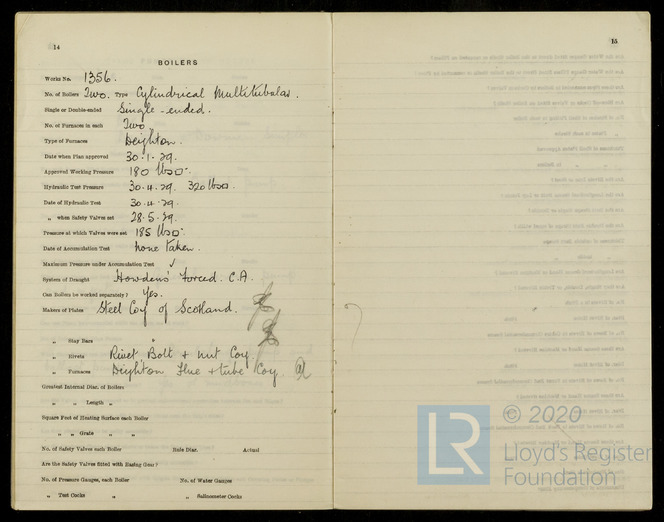 14
BOILERS
Works No. 1356.
No. of Boilers Two. Type Cylindrical Multitubular.
Single or Double-ended Single-ended.
No. of Furnaces in each Two
Type of Furnaces Deighton.
Date when Plan approved 30.1.29.
Approved Working Pressure 180 lbs□.
Hydraulic Test Pressure 30.4.29. 320 lbs□.
Date of Hydraulic Test 30.4.29.
„ when Safety Valves set 28.5.29.
Pressure at which Valves were set 185 lbs□.
Date of Accumulation Test none taken.
Maximum Pressure under Accumulation Test ✓
System of Draught Howdens' Forced. C.A.
Can Boilers be worked separately? Yes.
Makers of Plates Steel Coy of Scotland.
„ Stay Bars „
„ Rivets Rivet Bolt + nut Coy.
„ Furnaces Deighton Flue + tube Coy.
Greatest Internal Diar. of Boilers
„ „ Length „
Square Feet of Heating Surface each Boiler
„ „ Grate „ „
No. of Safety Valves each Boiler Rule Diar. Actual
Are the Safety Valves fitted with Easing Gear?
No. of Pressure Gauges, each Boiler No. of Water Gauges
„ Test Cocks „ „ Salinometer Cocks
15
LR
© 2020
Lloyd's Register
Foundation